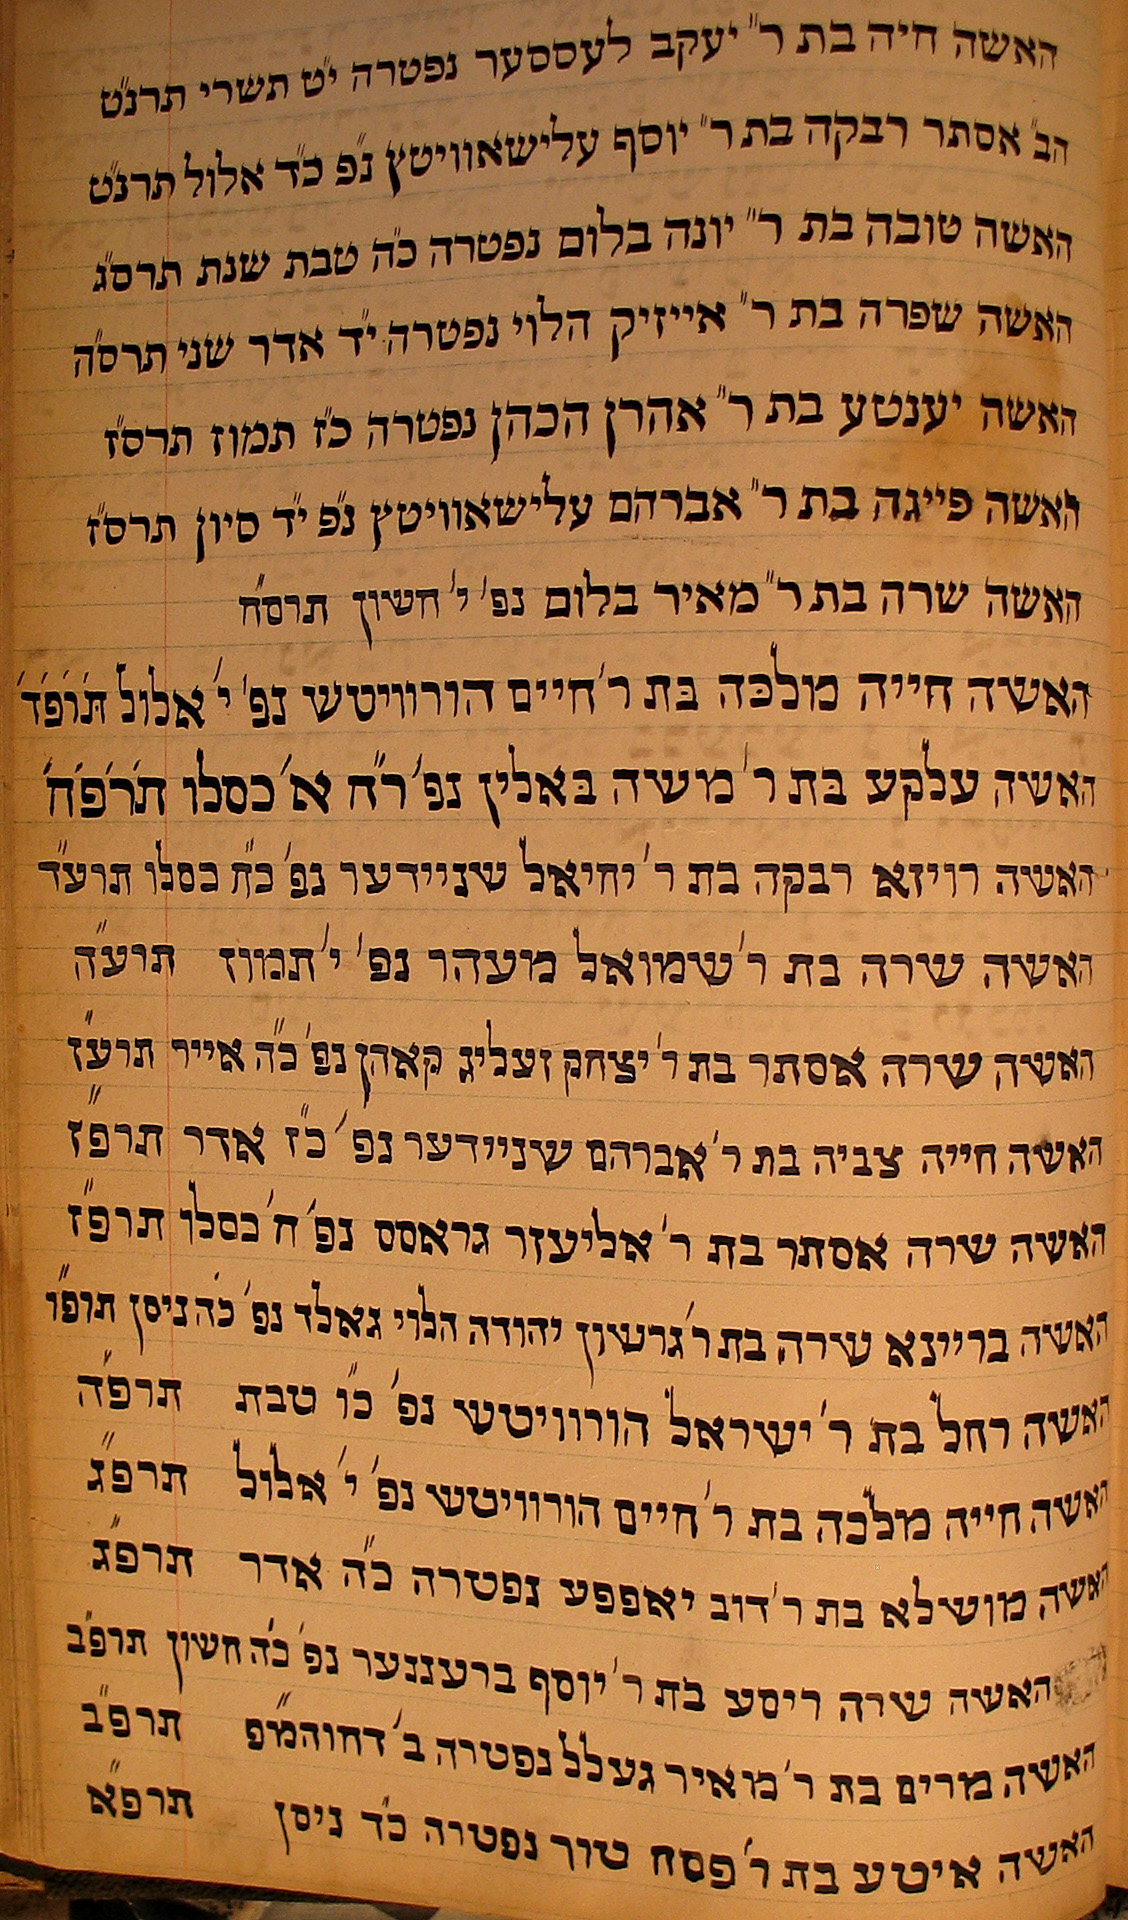 האשה חיה בת ר״ יעקב לעססער נפטרה י״ט תשרי תרנ״ט
הב״ אסתר רבקה בת ר״ יוסף עלישאוויטץ נ״פ כ״ד אלול תרנ״ט
האשה טובה בת ר״ יונה בלום נפטרה כ״ה טבת שנת תרס״ג
האשה שפרה בת ר״ אייזיק הלוי נפטרה י״ד אדר שני תרס״ה
האשה יענטע בת ר״ אהרן הכהן נפטרה כ״ז תמוז תרס״ז
האשה פייגה בת ר״ אברהם עלישאוויטץ נ״פ י״ד סיון תרס״ז
האשה שרה בת ר״ מאיר בלום נפ׳ י׳ חשון תרס״ח
האשה חייה מולכה בת ר׳ חיים הורוויטש נפ׳ י׳ אלול ת׳ר׳פ׳ד׳
האשה עלקע בת ר׳ משה באלין נפ׳ ר״ח א׳ כסלו ת׳ר׳פ׳ח׳
האשה רויזא רבקה בת ר׳ יחיאל שניידער נפ׳ כ״ח כסלו תרע״ד
האשה שרה בת ר׳ שמואל מעהר נפ׳ י׳ תמוז תרע״ה
האשה שרה אסתר בת ר׳ יצחק זעליג קאהן נפ׳ כ״ה אייר תרע״ז
האשה חייה צביה בת ר׳ אברהם שניידער נפ׳ כ״ז אדר תרפ״ז
האשה שרה אסתר בת ר׳ אליעזר גראסס נפ׳ ח׳ כסלו תרפ״ז
האשה בריינא שירה בת ר׳ גרשון יהודה הלוי גאלד נפ׳ כ״ה ניסן תרפ״ו
האשה רחל בת ר׳ ישראל הורוויטש נפ׳ כ״ו טבת תרפ״ה
האשה חייה מולכה בת ר׳ חיים הורוויטש נפ׳ י׳ אלול תרפ״ג
האשה מושלא בת ר׳ דוב יאפפע נפטרה כ״ה אדר תרפ״ג
האשה שרה ריסע בת ר׳ יוסף ברעננער נפ׳ כ״ה חשון תרפ״ב
האשה מרים בת ר׳ מאיר געלל נפטרה ב׳ דחוהמ״פ תרפ״ב
האשה איטע בת ר׳ פסח טור נפטרה כ״ד ניסן תרפ״א